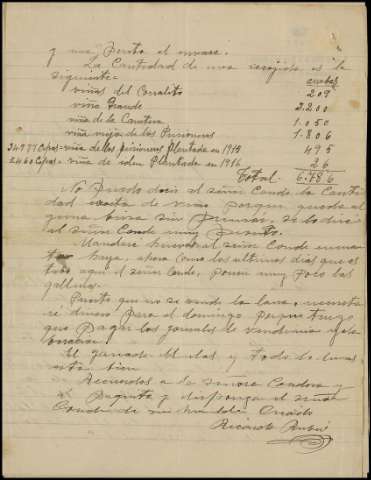 y muy pronto el envase.
La Cantidad de uva recojida es la
siguiente= arrobas
viñas del Corralito 209
viña Grande 2.200
viña de la Cantera 1.050
viña vieja de los Prisioneros 1.806
34.977 Cepas- viña de los prisioneros Plantada en 1915 495
2460 Cepas- viña de idem Plantada en 1916 26
Total. 6.786
No puedo decir al señor Conde la Canti
dad exacta de vino porque queda al
guna tina sin prensar, se lo diré
al señor Conde muy pronto.
Mandaré huevos al señor Conde cuan
tos haya, ahora como los ultimos dias que es
tuvo aqui el señor Conde, ponen muy poco las
gallinas.
Puesto que no se vende la lana, necesita
ré dinero para el domingo porque tengo
que pagar los jornales de vendimia y de la
El ganado, mulas y todo lo demas
está bien
Recuerdos a la señora Condesa y
a Paquita y disponga el señor
Conde de su humilde Criado
Ricardo Rubio